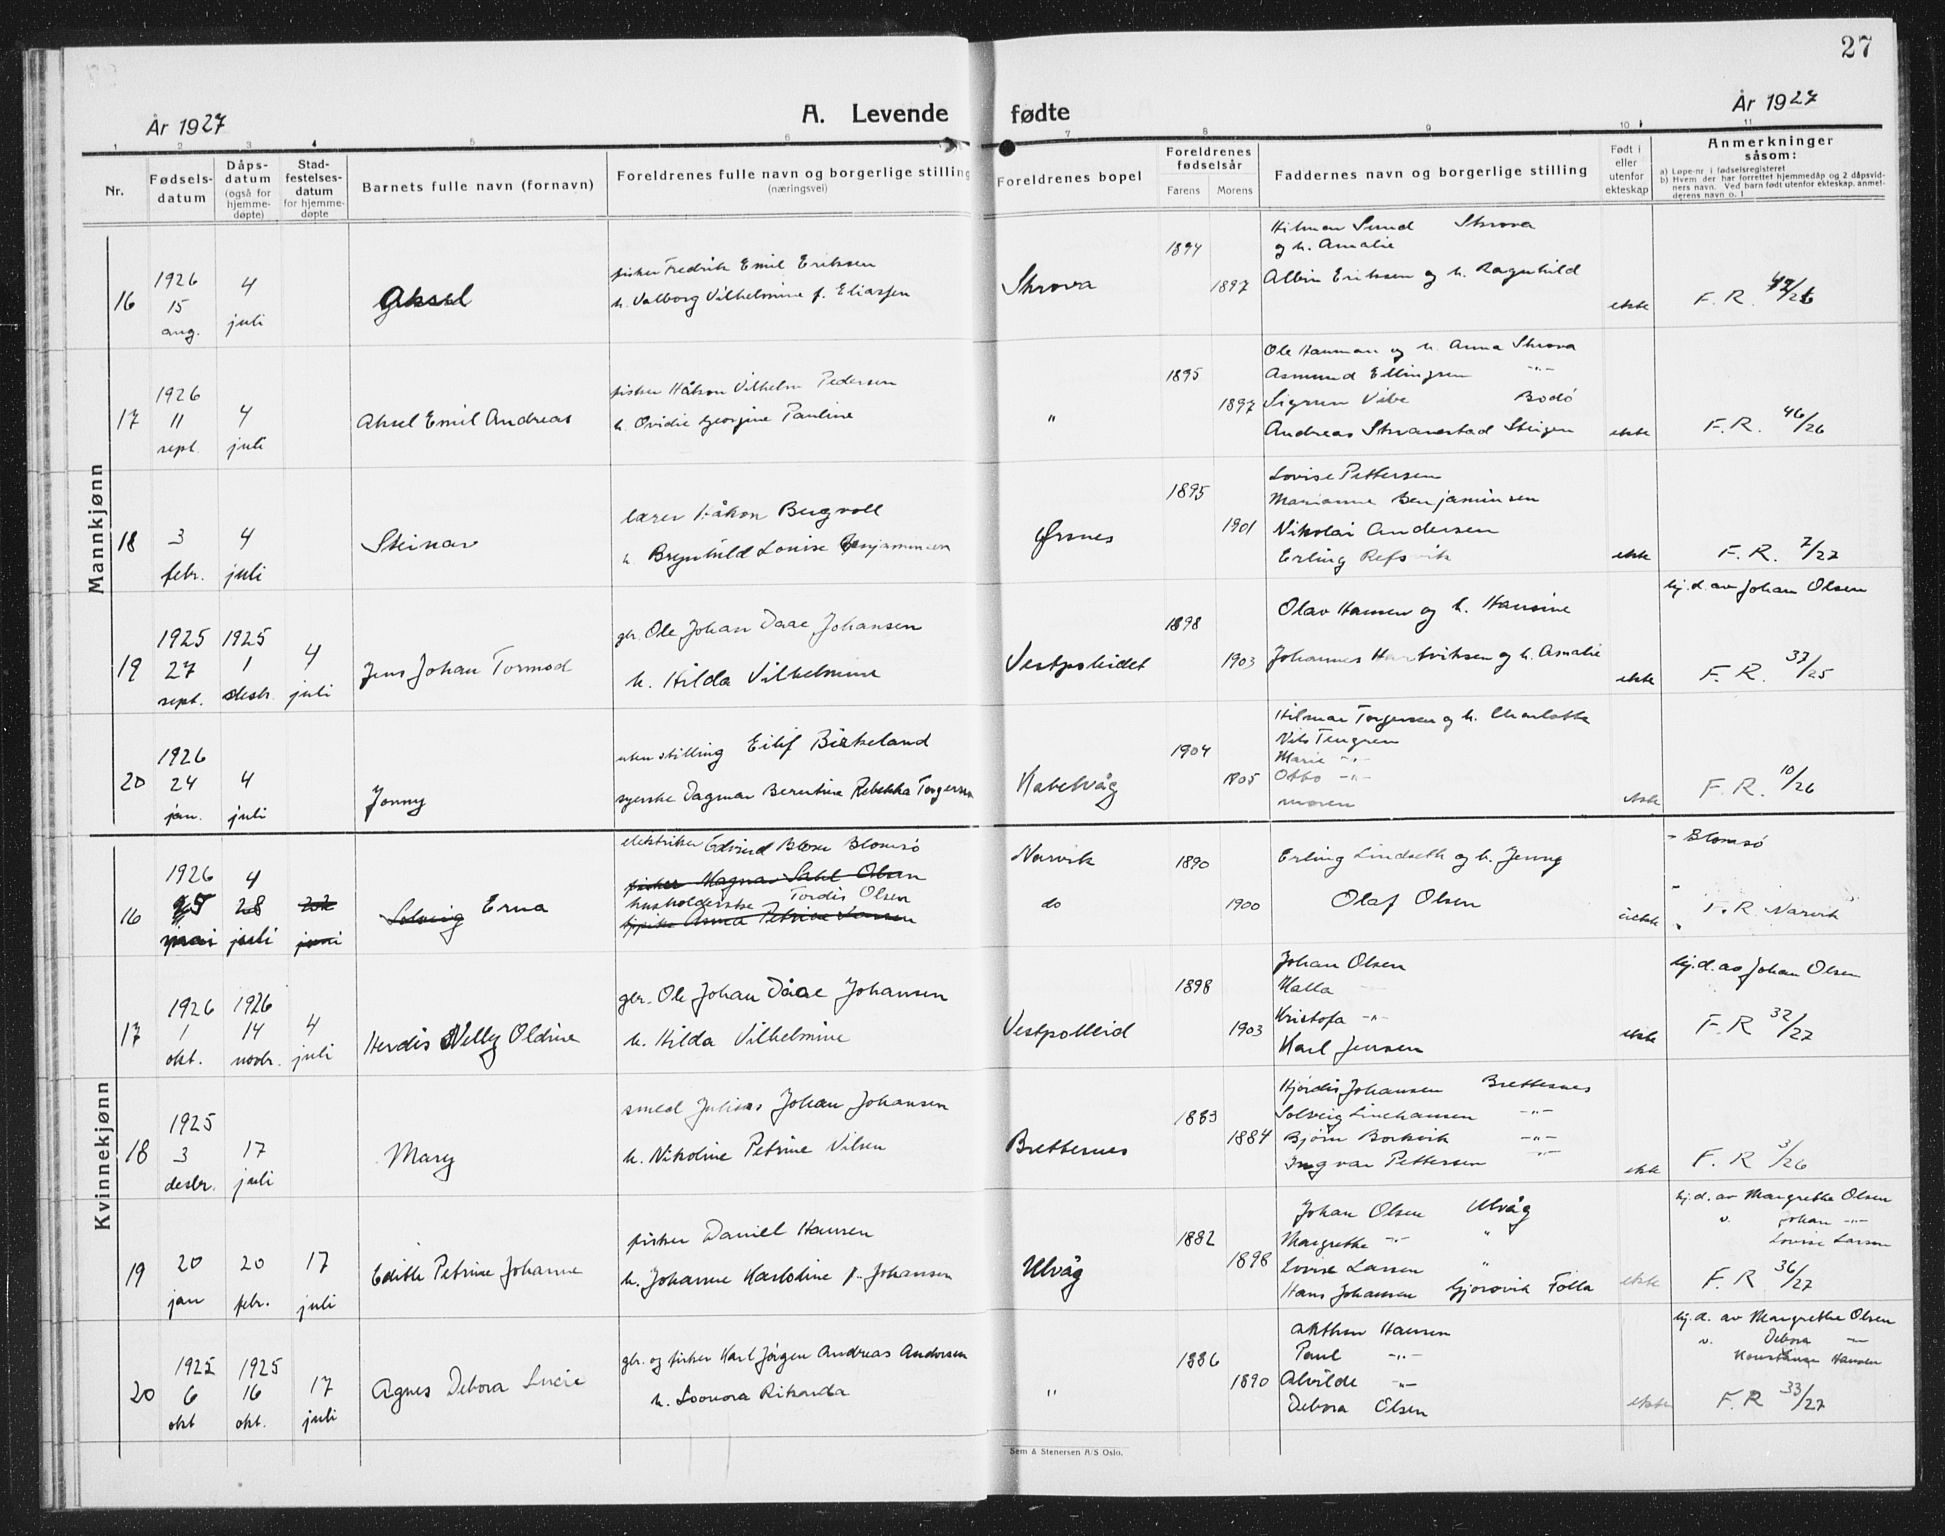 27
År 1927
A. Levende fødte
År 1927
1 2 3 4 5 6 7 8 9 10 11
Nr.
Fødsels-
datum
Dåps-
datum
(også for
hjemme-
døpte)
Stad-
festelses-
datum
for hjemme-
døpte
Barnets fulle navn (fornavn)
Foreldrenes fulle navn og borgerlige stilling
(næringsvei)
Foreldrenes bopel
Foreldrenes
fødselsår
Farens Morens
Faddernes navn og borgerlige stilling
Født i
eller
utenfor
ekteskap
Anmerkninger
såsom:
a) Løpe-nr i fødselsregisteret
b) Hvem der har forrettet hjemmedåp og 2 dåpsvid-
ners navn. Ved barn født utenfor ekteskap, anmel-
derens navn o. l
Mannkjønn
16
1926
15
aug.
4
juli
Aksel
fisker Fredrik Emil Eriksen
h. Valborg Vilhelmine f. Eliassen
Skrova
1894
1897
Hilmar Sund Skrova
og h. Amalie
Albin Eriksen og h. Ragnhild
ekte
F. R.
17
1926
11
sept.
4
juli
Aksel Emil Andreas
fisker Håkon Vilhelm Pedersen
h. Ovidie Georgine Pauline
"
1895
1897
Ole Hanman og h. Anna Skrova
Asmund Ellingsen -"-
Sigrun Vibe Bodø
Andreas Skvanestad Steigen
ekte
F. R. 46/26
18
3
febr.
4
juli
Steinar
lærer Håkon Bergvoll
h. Brynhild Louise Benjaminsen
Ørsnes
1895
1901
Lovise Pettersen
Marianne Benjaminsen
Nikolai Andersen
Erling Refsvik
ekte
F. R. 7/27
19
1925
27
sept.
1925
1
desbr.
4
juli
Jens Johan Tormod
gbr. Ole Johan Daae Johansen
h. Hilda Vilhelmine
Vestpolleidet
1898
1903
Olav Hansen og h. Hansine
Johannes Hartviksen og h. Amalie
ekte
hj.d. av Johan Olsen
F. R. 37/25
20
1926
24
jan.
4
juli
Jonny
uten stilling Eilif Birkeland
syerske Dagmar Berntine Rebekka Torgersen
Kabelvåg
1904
1905
Hilmar Torgersen og h. Charlotte
Nils Tengren
Marie -"-
Otto -"-
moren
ekte
F. R. 10/26
Kvinnekjønn
16
1926
25
mai
4
28
juli
juni
Solveig Erna
elektriker Edvind Blom Blomsø
fisker Magnar Sahl Olsen
husholderske Tordis Olsen
Asma Petrine Larsen
Narvik
do
1890
1900
Erling Lindseth og h. Jenny
Olaf Olsen
uekte
- Blomsø
F. R. Narvik
17
1926
1
okt.
1926
14
novbr.
4
juli
Herdis Nelly Oldine
gbr. Ole Johan Dåae Johansen
h. Hilda Vilhelmine
Vestpolleid
1898
1903
Johan Olsen
Halla
Kristofa -"-
Karl Jensen
ekte
hj.d. av Johan Olsen
F. R 32/27
18
1925
3
desbr.
17
juli
Mary
smed Julius Johan Johansen
h. Nikoline Petrine Nilsen
Brettesnes
1883
1884
Hjørdis Johansen Brettesnes
Solveig Linchausen -"-
Bjørn Borkvik -"-
Ingvar Pettersen -"-
ekte
F. R 3/26
19
20
jan
20
febr.
17
juli
Edith Petrine Johanne
fisker Daniel Hansen
h. Johanne Karloline f. Johansen
Ulvåg
1882
1898
Johan Olsen Ulvåg
Margrethe -"- "
Lovise Larsen "
Hans Johansen Gjorovik Folla
ekte
hj.d. av Margrethe Olsen
v. Johan -"-
Lovise Larsen
F. R 36/27
20
1925
6
okt
1925
16
okt.
17
juli
Agnes Debora Lucie
gbr. og fisker Karl Jörgen Andreas Andersen
h. Leonora Rikarda
"
1886
1890
Arthur Hansen
Paul -"-
Alvilde -"-
Debora Olsen
ekte
hj.d. av Margrethe Olsen
v. Debora -"-
Konstanse Hansen
F. R 33/27
Sem & Stenersen A/S Oslo.